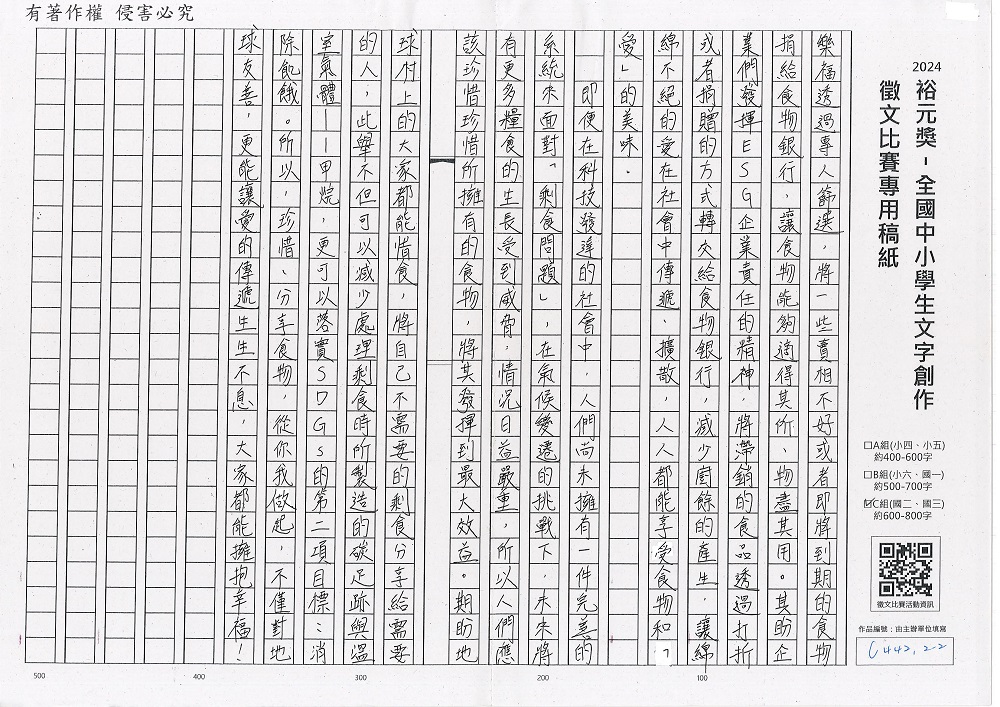 有著作權 侵害必究
2024
裕元獎-全國中小學生文字創作
徵文比賽專用稿紙
□A組(小四、小五)
約400-600字
□B組(小六、國一)
約500-700字
☑C組(國二、國三)
約600-800字
徵文比賽活動資訊
作品編號：由主辦單位填寫
C442,2-2
樂福透過專人篩選，將一些賣相不好或者即將到期的食物
捐給食物銀行，讓食物能夠適得其所、物盡其用。其盼企
業們發揮ESG企業責任的精神，將滯銷的食品透過打折
或者捐贈的方式轉交給食物銀行，減少廚餘的產生，讓綿
綿不絕的愛在社會中傳遞、擴散，人人都能享受食物和「
愛」的美味。
即便在科技發達的社會中，人們尚未擁有一件完善的
系統來面對「剩食問題」，在氣候變遷的挑戰下，未來將
有更多糧食的生長受到威脅，情況日益嚴重，所以人們應
該珍惜珍惜所擁有的食物，將其發揮到最大效益。期盼地
球村上的大家都能惜食，將自己不需要的剩食分享給需要
的人，此舉不但可以減少處理剩食時所製造的碳足跡與溫
室氣體——甲烷，更可以落實SDGs的第二項目標：消
除飢餓。所以，珍惜、分享食物，從你我做起，不僅對地
球友善，更能讓愛的傳遞生生不息，大家都能擁抱幸福！
100
200
300
400
500